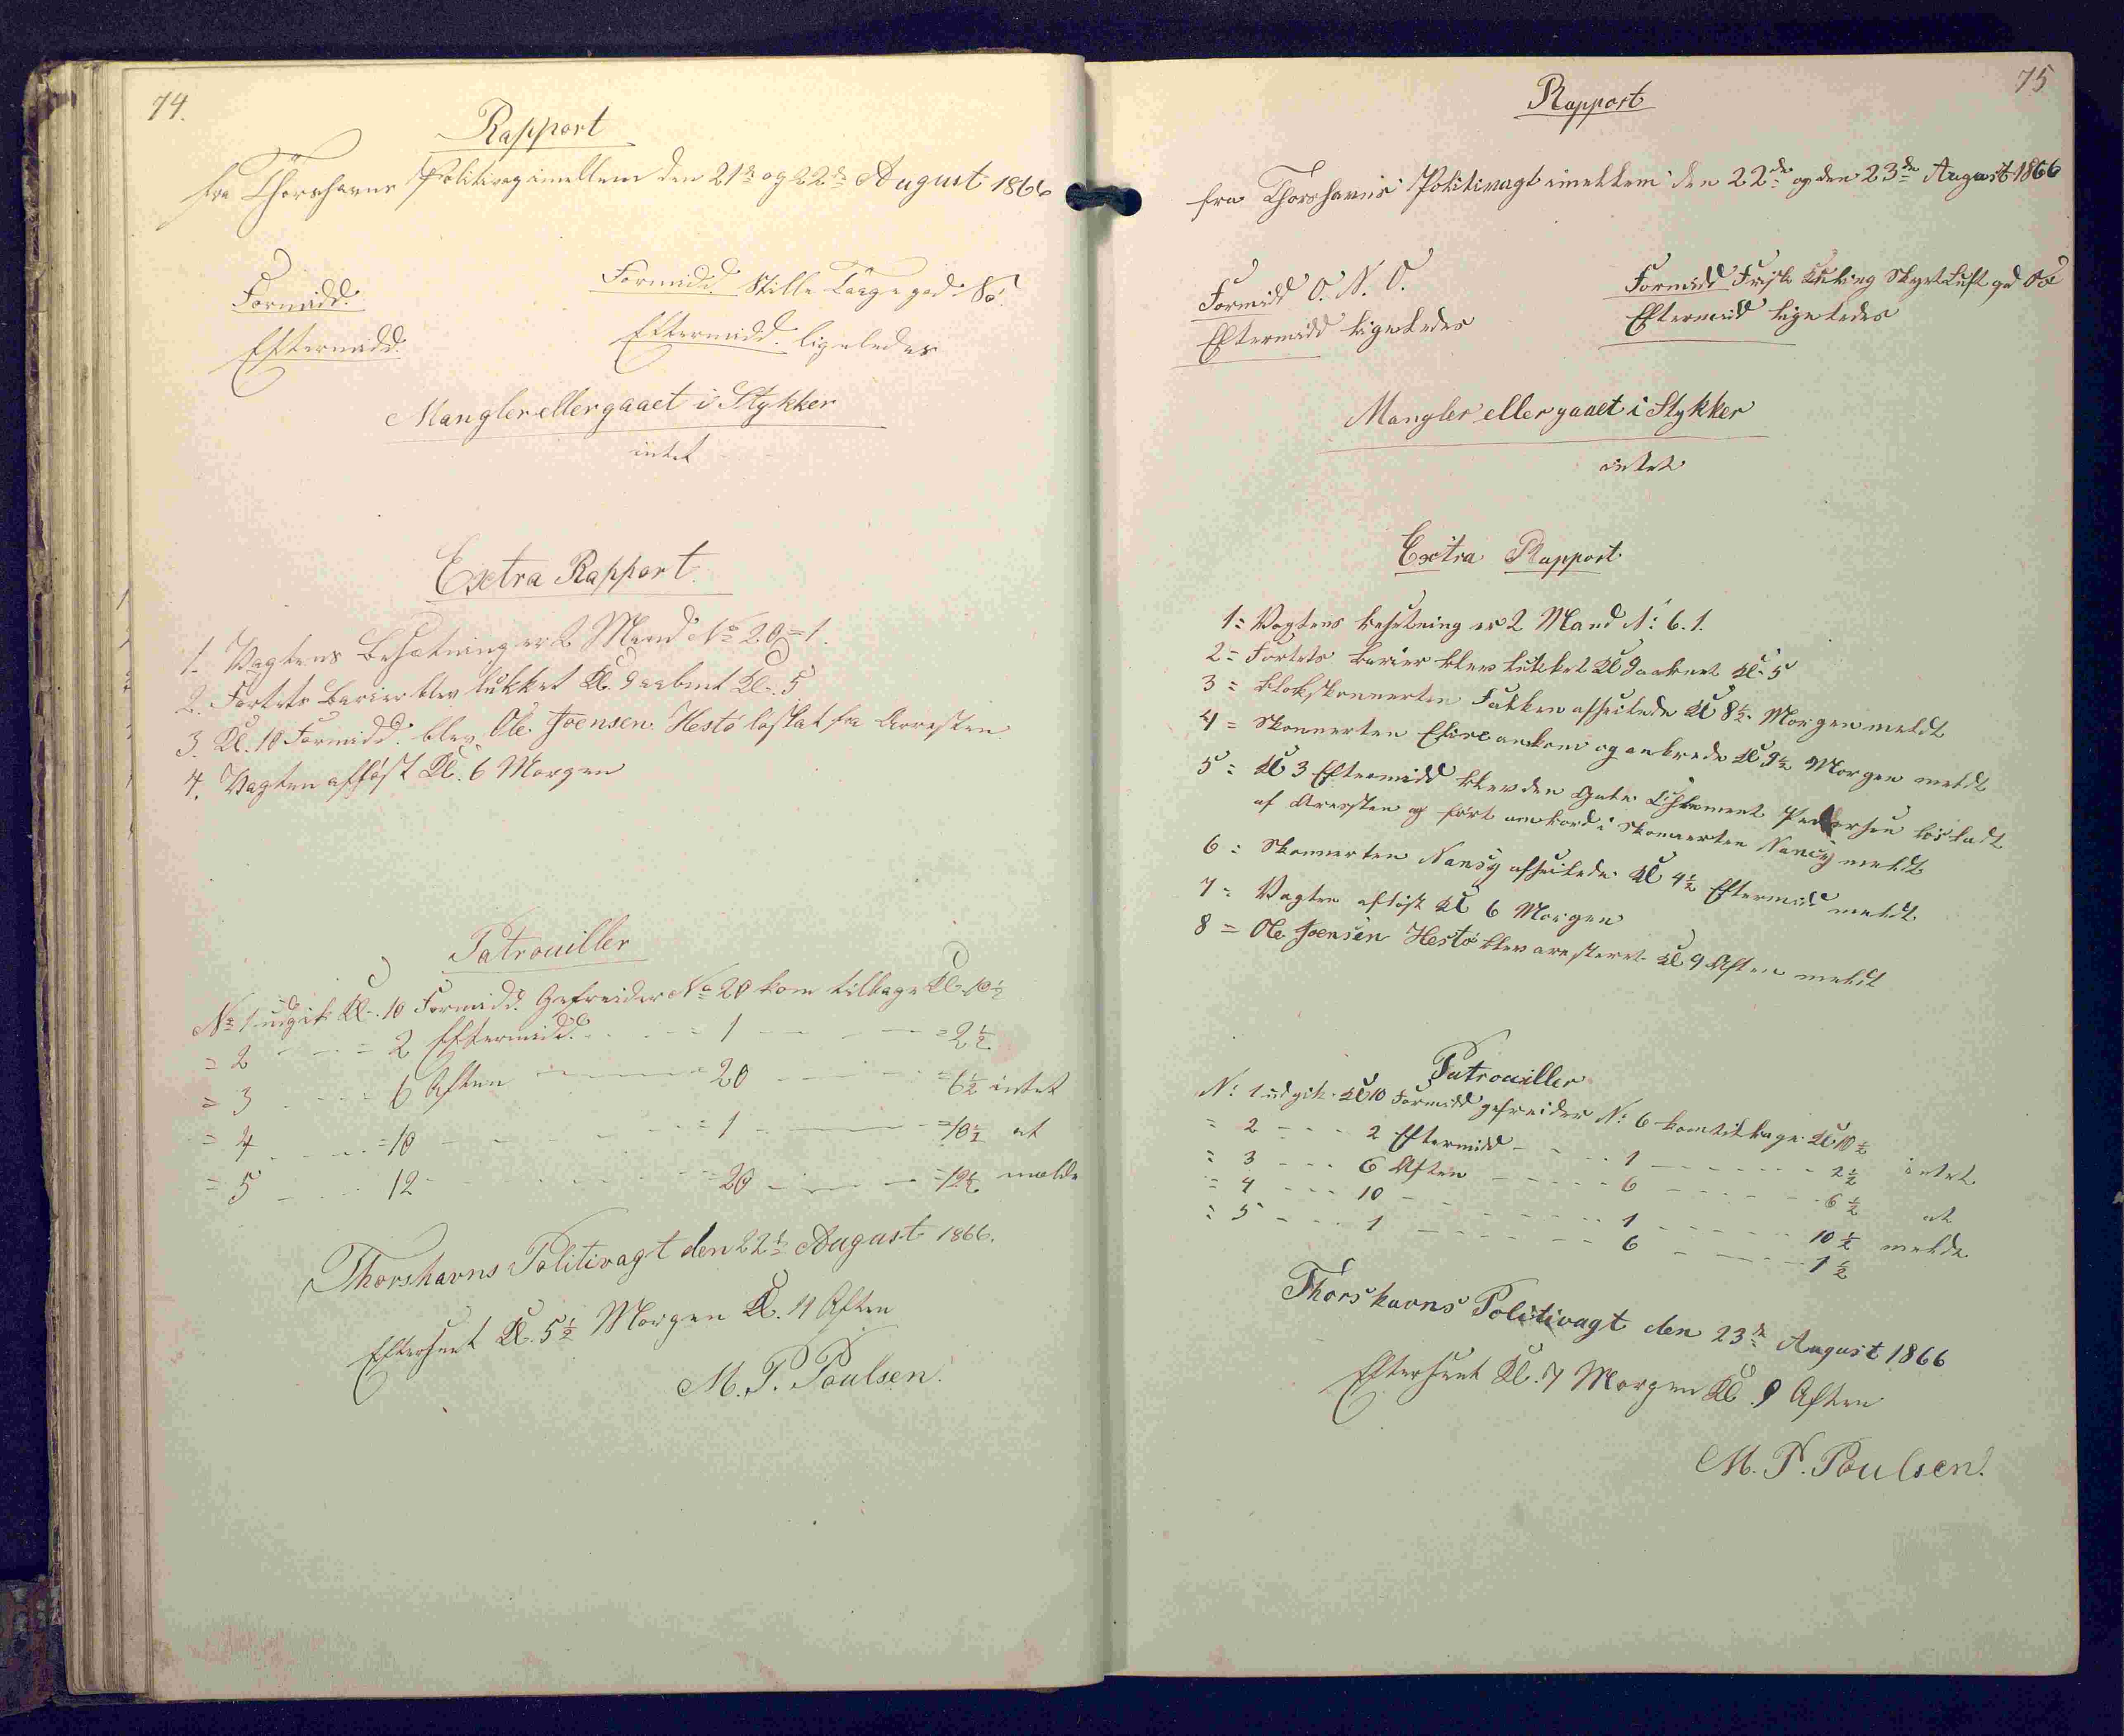 74.
Rapport
fra Thorshavns Politivagt imellem den 21de og 22de August 1866
Formidd. Formidd. Stille Taage god Sö.
Eftermidd. Eftermidd. ligeledes
Mangler eller gaaet i Stykker
intet
Extra Rapport.
1. Vagtens Besætning er 2 Mand No 20 = 1.
2. Fortets Barier blev lukket Kl. 9 aabent Kl. 5
3. Kl. 10 Formidd. blev Ole Joensen Hestö losladt fra Arresten
4. Vagten aflöst Kl. 6 Morgen
Patrouiller
No 1 udgik Kl. 10 Formidd. Gefreider No 20 kom tilbage Kl. 10½
= 2 - - = 2 Eftermidd. - - - = 1 - - - = 2½
= 3 - - - 6 Aften - - - 20 - - - = 6½ intet
= 4 - - - = 10 - - - = 1 - - - = 10½ at
= 5 - - - 12 - - - = 20 - - - = 12½ melde
Thorshavns Politivagt den 22de August 1866.
Efterseet Kl. 5½ Morgen Kl. 11 Aften
M. P. Poulsen.
75
Rapport
fra Thorshavns Politivagt imellem den 22de og den 23de August 1866
Formidd O. N. O. Formidd Frisk Kuling Skyet Luft god Sö
Eftermidd ligeledes Eftermidd ligeledes
Mangler eller gaaet i Stykker
intet
Extra Rapport
1 = Vagtens besetning er 2 Mand N: 6. 1.
2 = Fortets barier blev lukket Kl 9 aabnet Kl. 5
3 = Slopskonnerten Falken afseilede Kl 8½ Morgen meldt
4 = Skonnerten ankom og ankrede Kl 9½ Morgen meldt
5 = Kl 3 Eftermidd blev den Pedersen losladt
af Arersten og fört ombord i Skonnerten Nancy meldt
6 = Skonnerten Nansy afseilede Kl 4½ Eftermidd meldt
7 = Vagten aflöst Kl 6 Morgen
8 = Ole Joensen Hestö blev aresteret Kl 9 Aften meldt
Patrouiller
N: 1 udgik Kl 10 Formidd gefreider N: 6 kom tilbage Kl 10½
= 2 - - - 2 Eftermidd - - - 1 - - - 2½ intet
= 3 - - - 6 Aften - - - 6 - - - 6½
= 4 - - - 10 - - - 1 - - - 10½ at
= 5 - - - 1 - - - 6 - - - 1½ melde
Thorshavns Politivagt den 23de August 1866
Efterseet Kl. 7 Morgen Kl. 9 Aften
M. P. Poulsen.